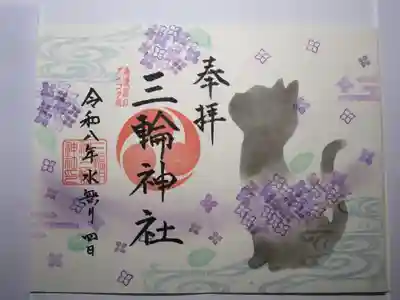 奉拝
三輪神社
令和八年水無月四日